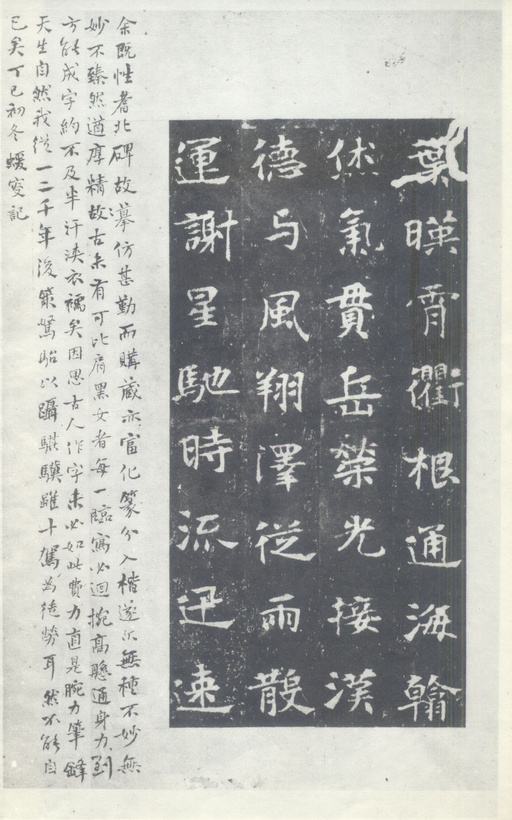 葉暎霄衢根通海翰
休氣貫岳榮光接漢
德与風翔澤從雨散
運謝星馳時流迅速
余既性耆北碑故摹仿甚勤而購藏亦富化篆分入楷遂尔無種不妙無
妙不臻然遒厚精故古未有可比肩黑女者每一臨寫必迴捥高懸通身力到
方能成字約不及半汗浹衣襦矣因思古人作字未必如此費力直是腕力筆鋒
天生自然我從一二千年後策駑駘以躡騏驥雖十駕為徒勞耳然不能自
已矣丁巳初冬蝯叟記